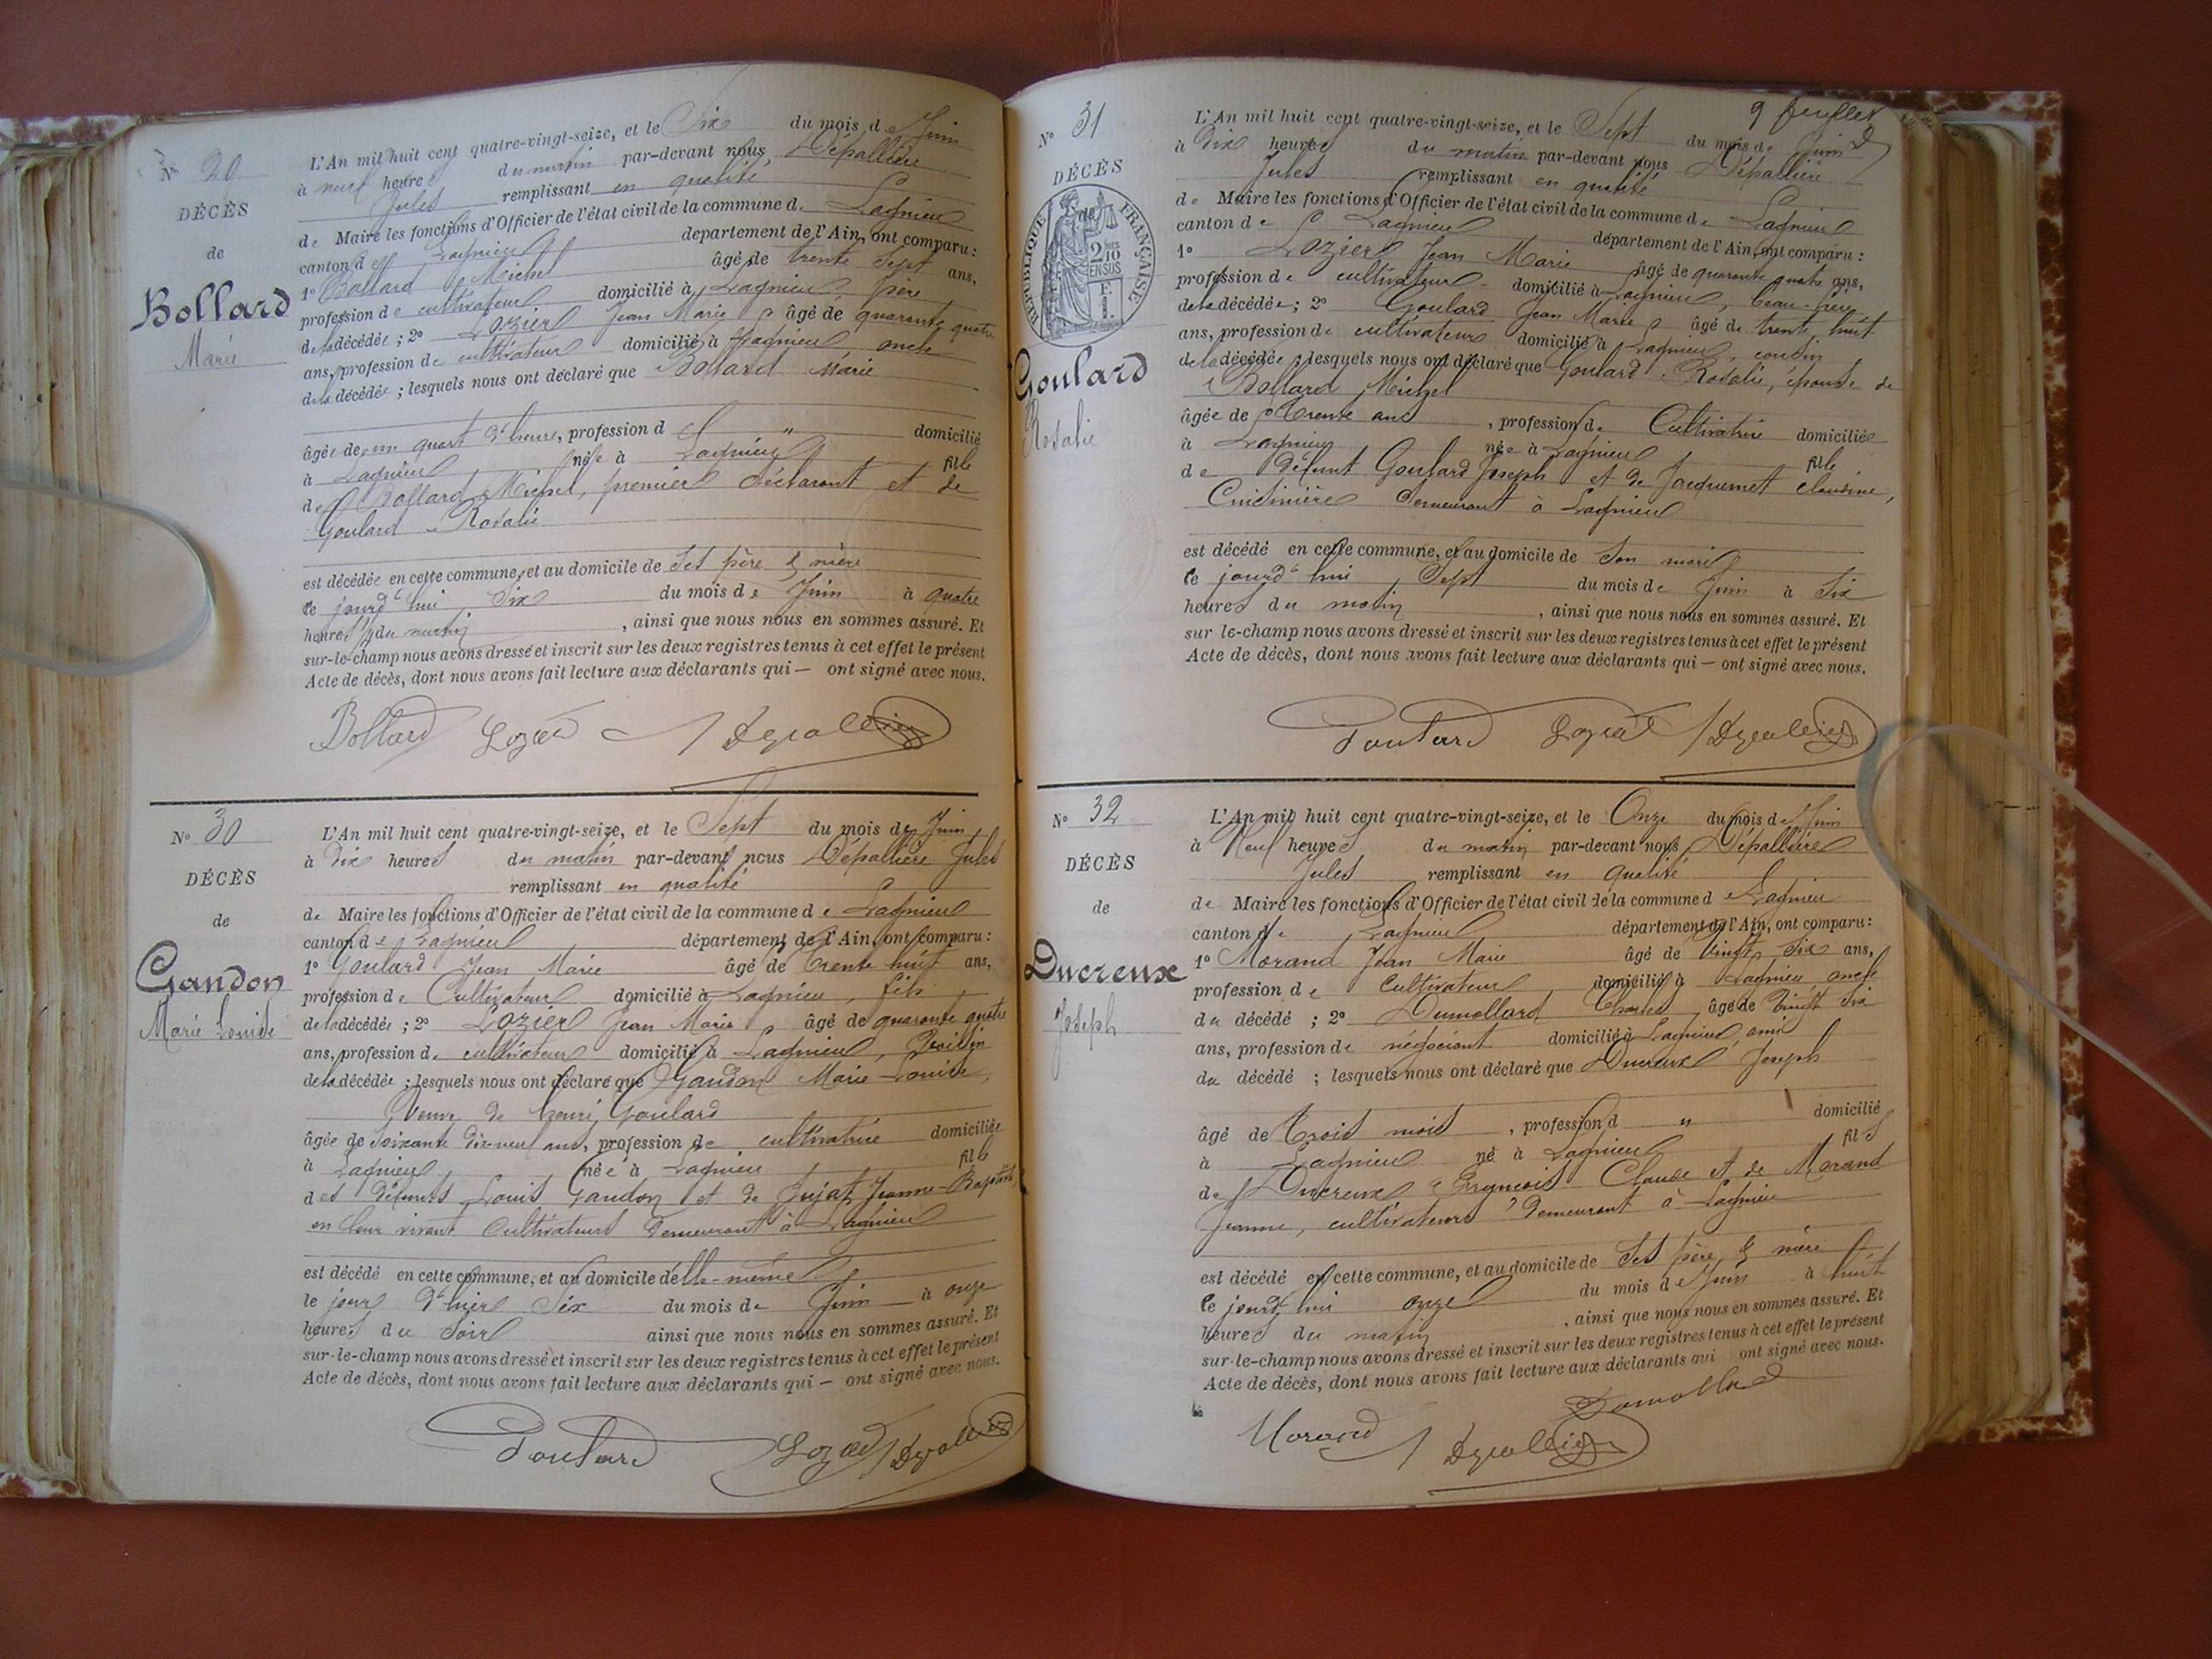 Nº 29
DÉCÈS
de
Bollard
Marie
L'An mil huit cent quatre-vingt-seize, et le Six du mois de Juin
à neuf heures du matin par-devant nous, Dépallière
Jules remplissant en qualité
de Maire les fonctions d'Officier de l'état civil de la commune de Lagnieu
canton de Lagnieu département de l'Ain, ont comparu :
1º Bollard Michel âgé de trente sept ans,
profession de cultivateur domicilié à Lagnieu, père
de la décédée ; 2º Lozier Jean Marie âgé de quarante quatre
ans, profession de cultivateur domicilié à Lagnieu oncle
de la décédée ; lesquels nous ont déclaré que Bollard Marie
âgée de un quart d'heure, profession d " domicilié
à Lagnieu née à Lagnieu fille
de Bollard Michel, premier déclarant et de
Goulard Rosalie
est décédée en cette commune, et au domicile de ses père & mère
ce jourd'hui Six du mois de Juin à quatre
heures du matin, ainsi que nous nous en sommes assuré. Et
sur-le-champ nous avons dressé et inscrit sur les deux registres tenus à cet effet le présent
Acte de décès, dont nous avons fait lecture aux déclarants qui — ont signé avec nous.
Bollard Lozier Dépallière
Nº 30
DÉCÈS
de
Gandon
Marie Louise
L'An mil huit cent quatre-vingt-seize, et le Sept du mois de Juin
à Dix heures du matin par-devant nous Dépallière Jules
remplissant en qualité
de Maire les fonctions d'Officier de l'état civil de la commune de Lagnieu
canton de Lagnieu département de l'Ain, ont comparu :
1º Goulard Jean Marie âgé de trente huit ans,
profession de Cultivateur domicilié à Lagnieu, fils
de la décédée ; 2º Lozier Jean Marie âgé de quarante quatre
ans, profession de cultivateur domicilié à Lagnieu, Voisin
de la décédée ; lesquels nous ont déclaré que Gandon Marie-Louise,
Veuve de henri Goulard
âgée de soixante dix-neuf ans, profession de cultivatrice domiciliée
à Lagnieu née à Lagnieu fille
des défunts Louis Gandon et de Jujat Jeanne-Baptiste,
en leur vivant Cultivateurs demeurant à Lagnieu
est décédé en cette commune, et au domicile d'elle-même
le jour d'hier Six du mois de Juin à onze
heures du soir ainsi que nous nous en sommes assuré. Et
sur-le-champ nous avons dressé et inscrit sur les deux registres tenus à cet effet le présent
Acte de décès, dont nous avons fait lecture aux déclarants qui — ont signé avec nous.
Goulard Lozier Dépallière
9 feuillet
Nº 31
DÉCÈS
de
RÉPUBLIQUE FRANÇAISE
2/10 EN SUS
1 F.
Goulard
Rosalie
L'An mil huit cent quatre-vingt-seize, et le Sept du mois de Juin
à Dix heures du matin par-devant nous Dépallière
Jules remplissant en qualité
de Maire les fonctions d'Officier de l'état civil de la commune de Lagnieu
canton de Lagnieu département de l'Ain, ont comparu :
1º Lozier Jean Marie âgé de quarante quatre ans,
profession de cultivateur domicilié à Lagnieu, beau-frère
de la décédée ; 2º Goulard Jean Marie âgé de trente huit
ans, profession de cultivateur domicilié à Lagnieu, cousin
de la décédée ; lesquels nous ont déclaré que Goulard Rosalie, épouse de
Bollard Michel
âgée de Trente ans, profession de Cultivatrice domiciliée
à Lagnieu née à Lagnieu fille
de défunt Goulard Joseph et de Jacquemet Claudine,
Cuisinière demeurant à Lagnieu
est décédé en cette commune, et au domicile de son mari
ce jourd'hui Sept du mois de Juin à Six
heures du matin, ainsi que nous nous en sommes assuré. Et
sur le-champ nous avons dressé et inscrit sur les deux registres tenus à cet effet le présent
Acte de décès, dont nous avons fait lecture aux déclarants qui — ont signé avec nous.
Goulard Lozier Dépallière
Nº 32
DÉCÈS
de
Ducreux
Joseph
L'An mil huit cent quatre-vingt-seize, et le Onze du mois de Juin
à Neuf heures du matin par-devant nous Dépallière
Jules remplissant en qualité
de Maire les fonctions d'Officier de l'état civil de la commune de Lagnieu
canton de Lagnieu département de l'Ain, ont comparu :
1º Morand Jean Marie âgé de Vingt six ans,
profession de Cultivateur domicilié à Lagnieu, oncle
du décédé ; 2º Dumollard Charles âgé de Vingt six
ans, profession de négociant domicilié à Lagnieu, ami
du décédé ; lesquels nous ont déclaré que Ducreux Joseph
âgé de Trois mois, profession d " domicilié
à Lagnieu né à Lagnieu fils
de Ducreux François Claude et de Morand
Jeanne, cultivateurs demeurant à Lagnieu
est décédé en cette commune, et au domicile de Ses père & mère
ce jourd'hui onze du mois de Juin à huit
heures du matin, ainsi que nous nous en sommes assuré. Et
sur-le-champ nous avons dressé et inscrit sur les deux registres tenus à cet effet le présent
Acte de décès, dont nous avons fait lecture aux déclarants qui ont signé avec nous.
Dumollard
Morand Dépallière